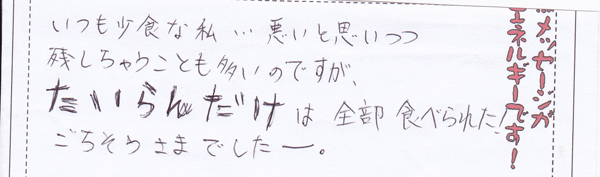 いつも少食な私…悪いと思いつつ
残しちゃうことも多いのですが、
たいらんだけは全部食べられた!
ごちそうさまでしたー。
メッセージが
エネルギーです!